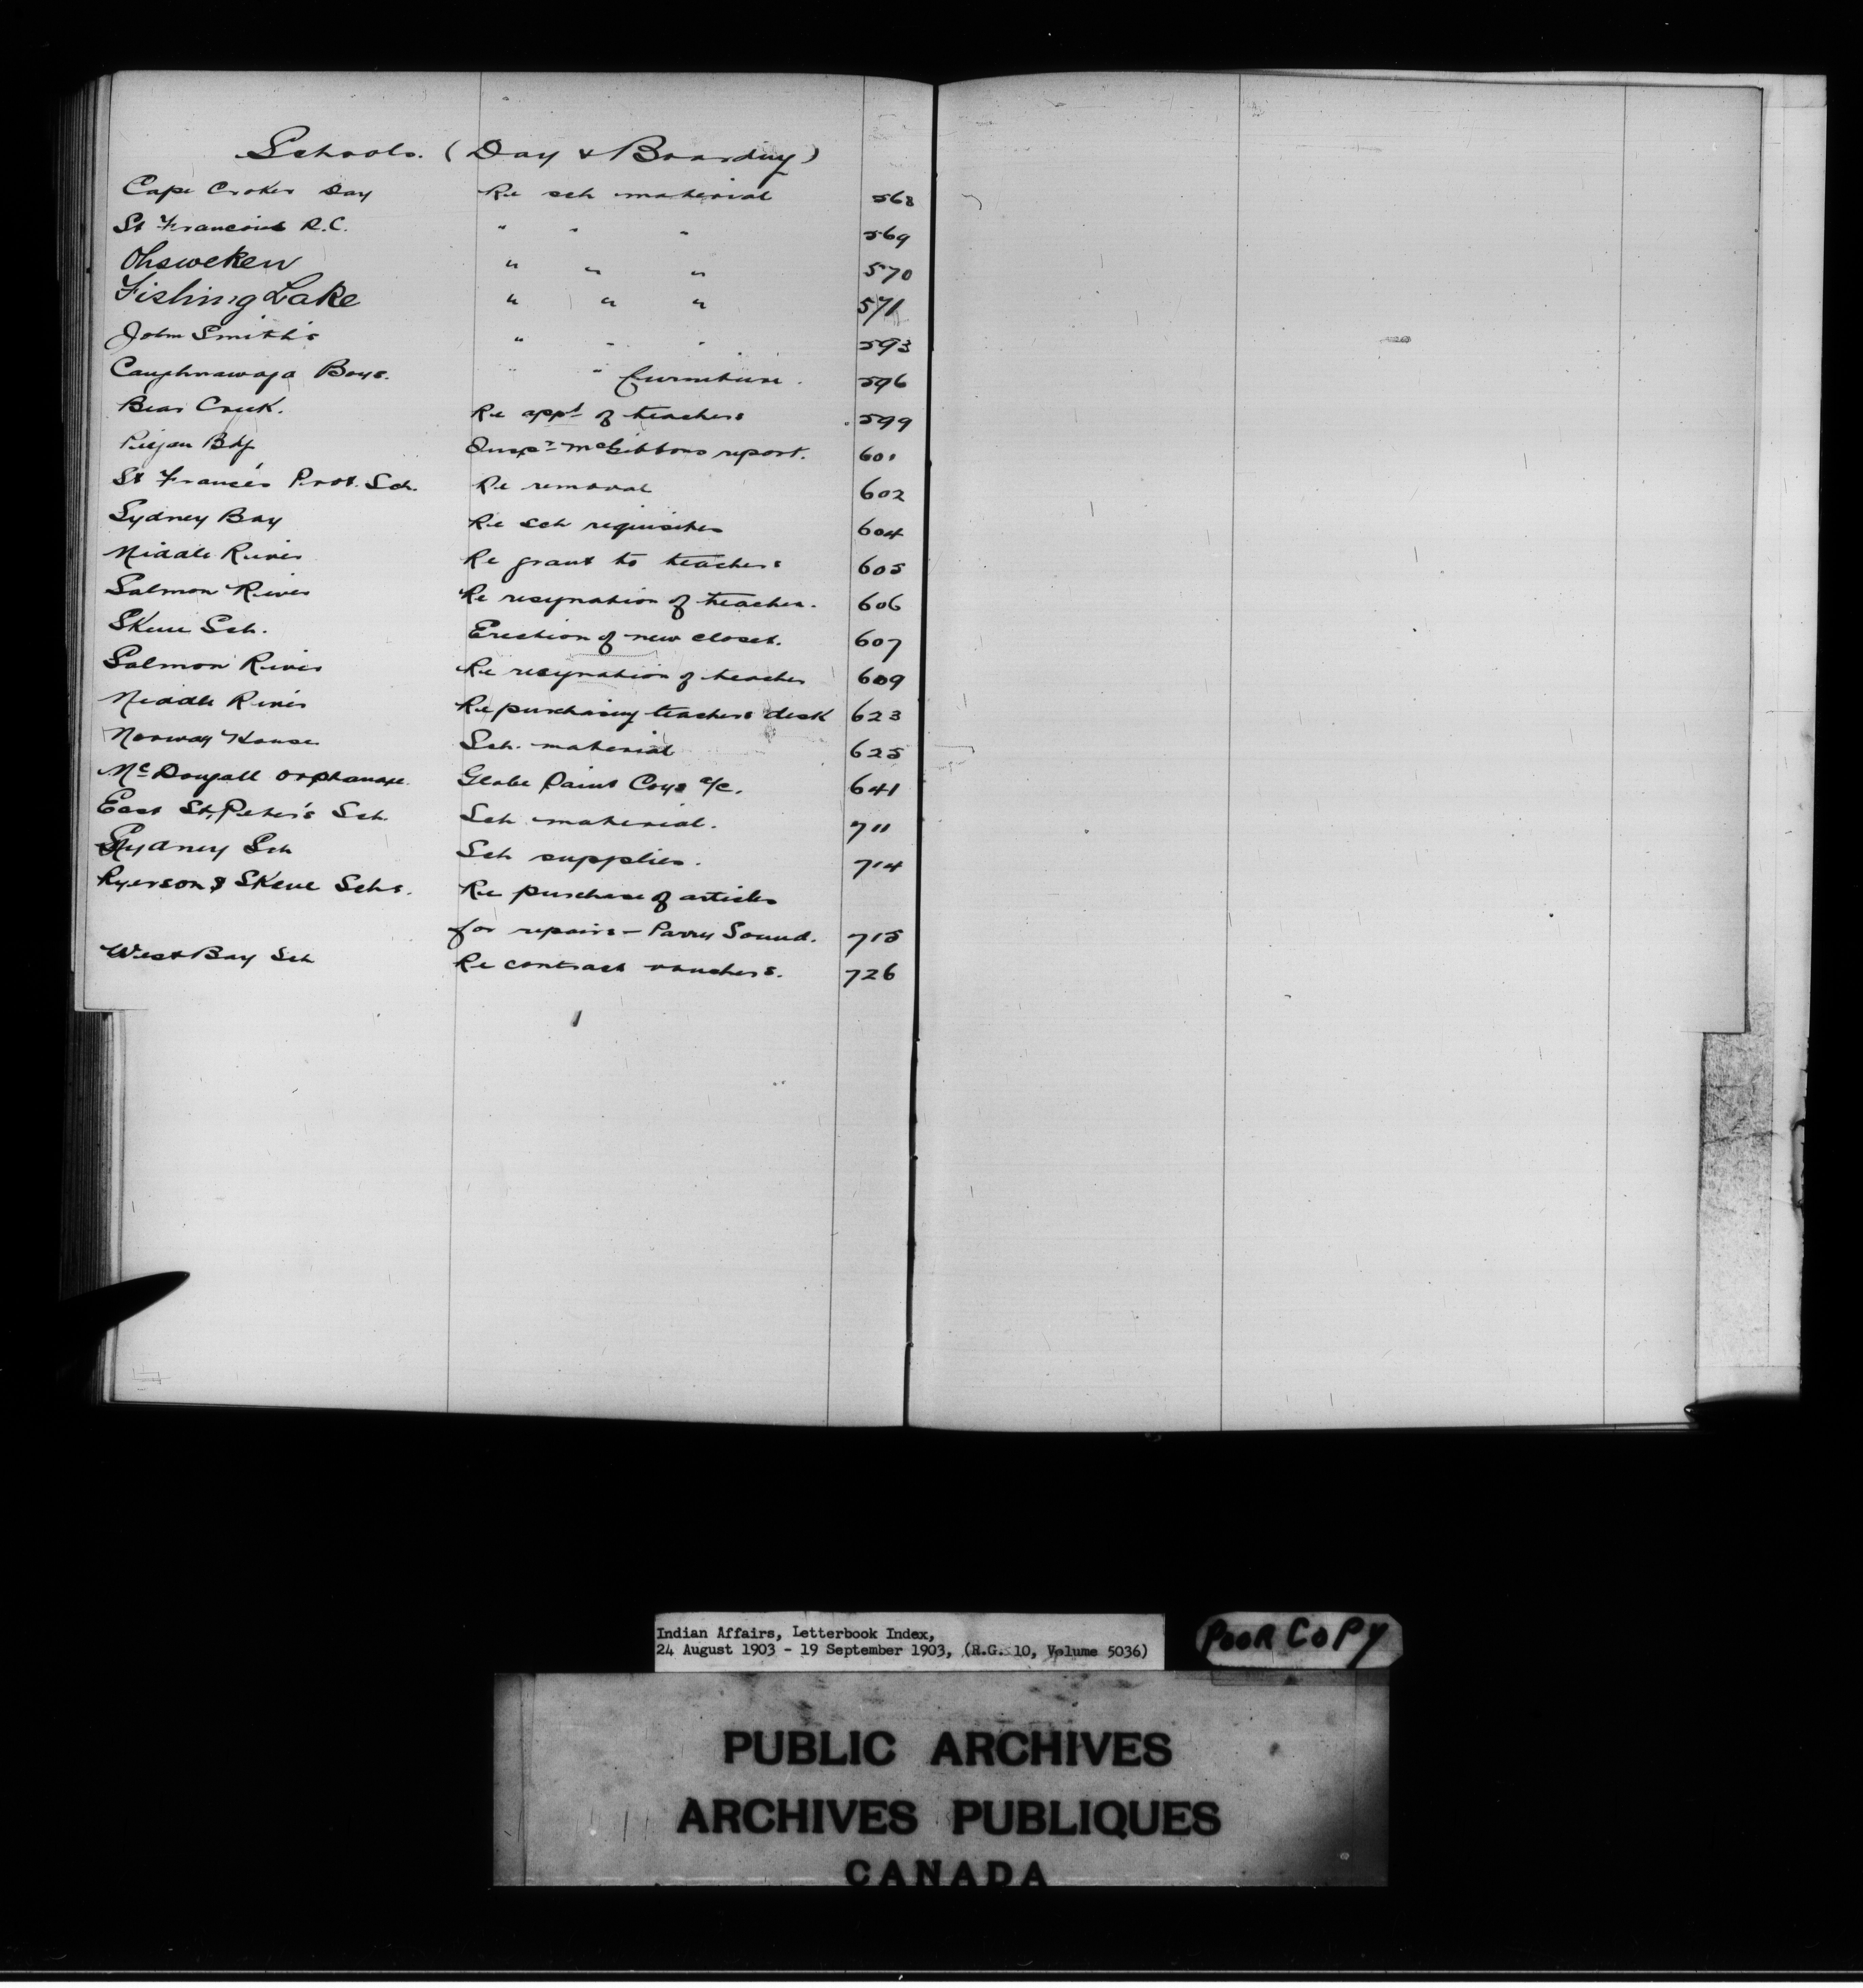 Schools. (Day & Boarding)
Cape Croker Day Re sch material 568
St Francois R.C. " " " 569
Ohsweken " " " 570
Fishing Lake " " " 571
John Smith's " " " 593
Caughnawaga Boys. " " furniture. 596
Bear Creek. Re appt of teachers 599
Piegan Bdg Inspr McGibbons report. 601
St Francis Prot. Sch. Re removal 602
Sydney Bay Re sch requisites 604
Middle River Re grant to teachers 605
Salmon River Re resignation of teacher. 606
Skene Sch. Erection of new closet. 607
Salmon River Re resignation of teacher 609
Middle River Re purchasing teachers desk 623
Norway House Sch. material 625
McDougall Orphanage. Globe Paint Coys a/c. 641
East St. Peter's Sch. Sch material. 711
Sydney Sch Sch supplies. 714
Ryerson & Skene Schs. Re purchase of articles
for repairs - Parry Sound. 715
West Bay Sch Re contract vouchers. 726
Indian Affairs, Letterbook Index,
24 August 1903 - 19 September 1903, (R.G. 10, Volume 5036)
POOR COPY
PUBLIC ARCHIVES
ARCHIVES PUBLIQUES
CANADA